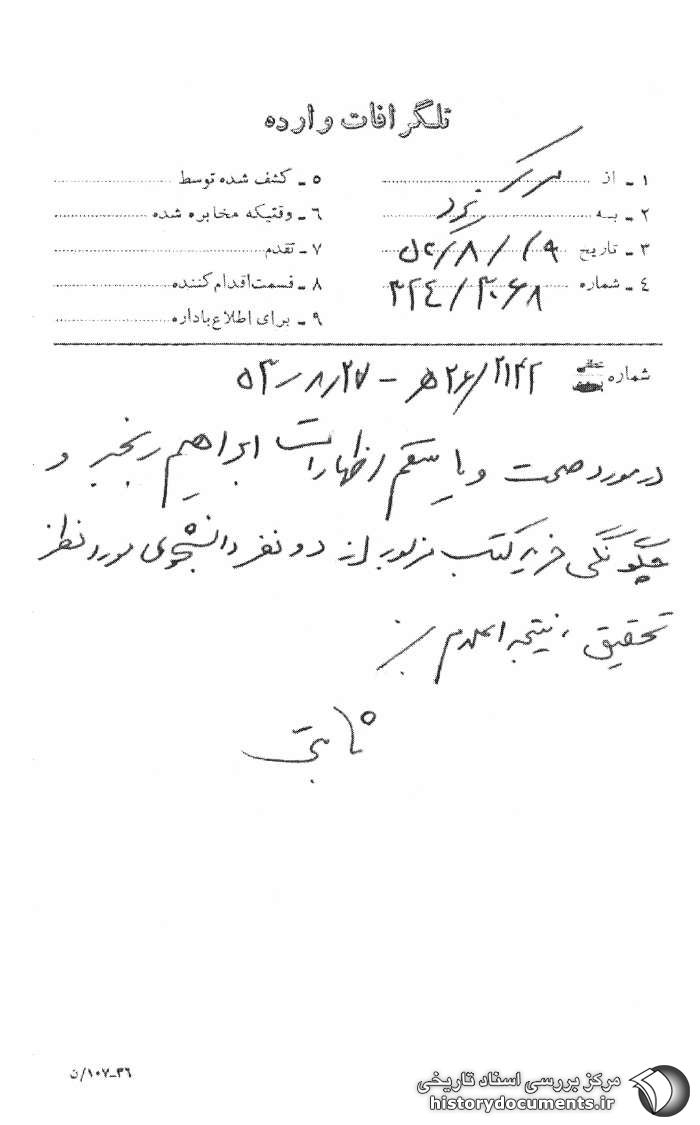 تلگرافات وارده
۱ ـ از مرکز
۲ ـ به یزد
۳ ـ تاریخ
۴ ـ شماره ۳۲۴/۳۰۶۸
۵ ـ کشف شده توسط
۶ ـ وقتیکه مخابره شده
۷ ـ تقدم
۸ ـ قسمت اقدام کننده
۹ ـ برای اطلاع باداره
شماره ۲۶/۲۱۴۲ه‍ - ۵۳/۸/۲۷
در مورد صحت و یا سقم اظهارات ابراهیم رنجبر و
چگونگی خرید کتب مزبور از دو نفر دانشجوی مورد نظر
تحقیق، نتیجه اعلام
ثابتی
۳۶ـ۱۰۷/ن
مرکز بررسی اسناد تاریخی
historydocuments.ir